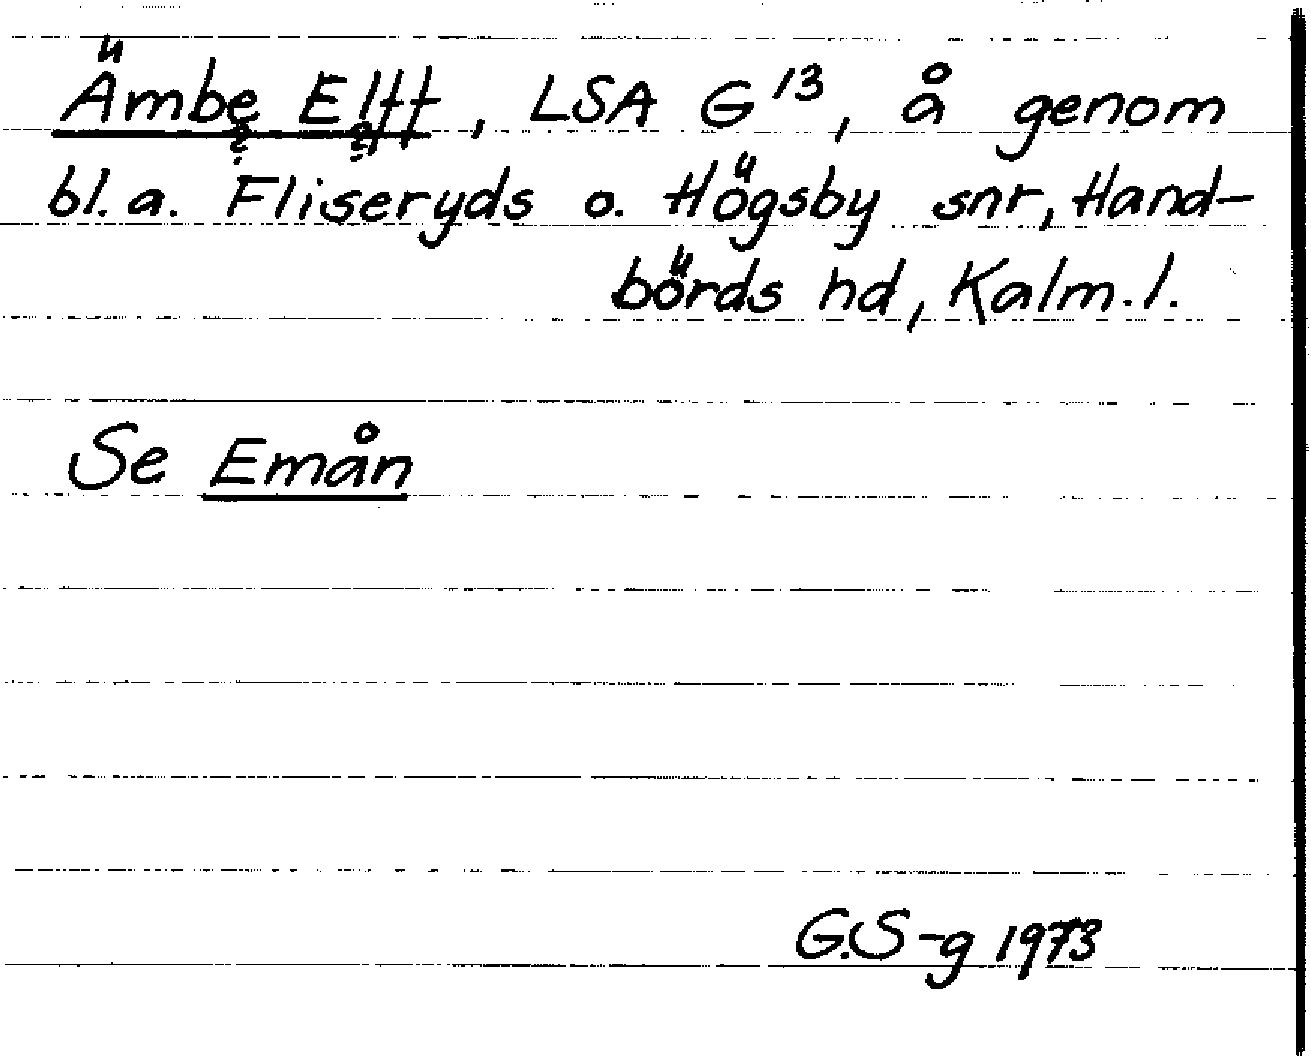 Ämbe Elff, LSA G 13, å genom
bl.a. Fliseryds o. Högsby snr, Hand-
börds hd, Kalm.l.
Se Emån
G.S-g 1973